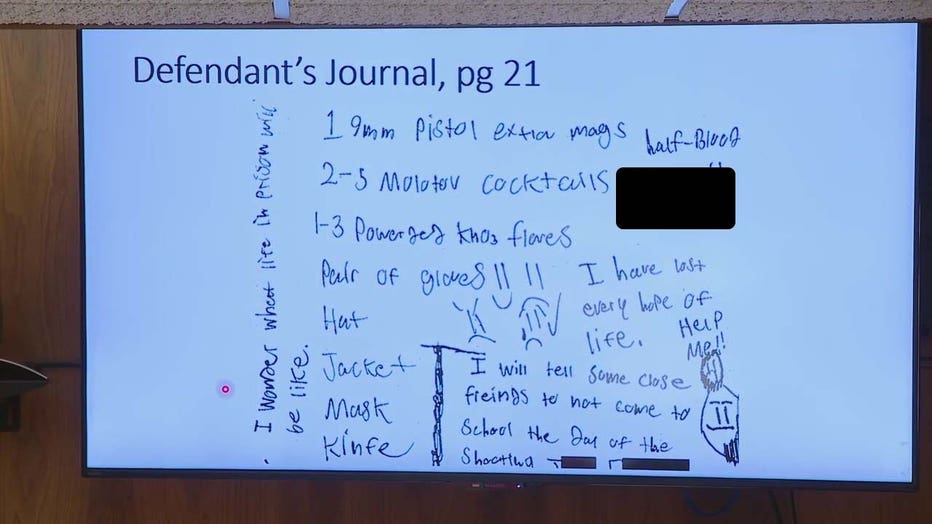 Defendant's Journal, pg 21
I wonder wheat life in prison will
be like.
1 9mm Pistol extra mags
half-Blood
2-5 Molotov cocktails
1-3 Powerzed kno3 flares
Pair of gloves
Hat
Jacket
Mask
Kinfe
I have lost
every hope of
life.
HELP
ME!!
I will tell some close
freings to not come to
School the Day of the
Shooting